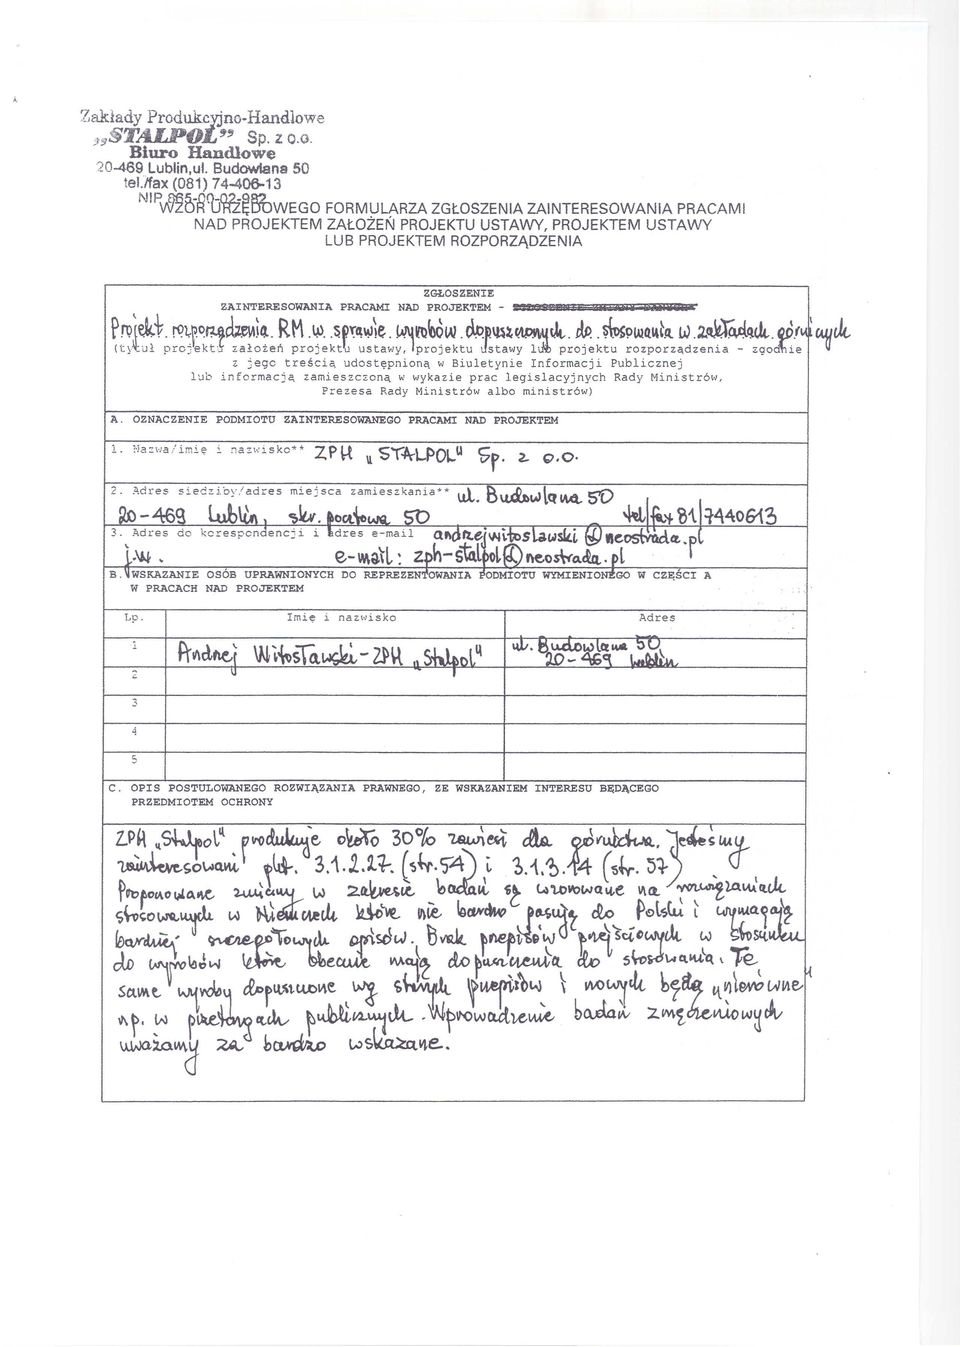 Zakłady Produkcyjno-Handlowe
„STALPOL” Sp. z o.o.
Biuro Handlowe
20-469 Lublin,ul. Budowlana 50
tel./fax (081) 74-406-13
NIP 865-00-02-982
WZÓR URZĘDOWEGO FORMULARZA ZGŁOSZENIA ZAINTERESOWANIA PRACAMI
NAD PROJEKTEM ZAŁOŻEŃ PROJEKTU USTAWY, PROJEKTEM USTAWY
LUB PROJEKTEM ROZPORZĄDZENIA
ZGŁOSZENIE
ZAINTERESOWANIA PRACAMI NAD PROJEKTEM - ZGŁOSZENIE ZMIANY DANYCH*
Projekt rozporządzenia RM w sprawie wyrobów dopuszczonych do stosowania w zakładach górniczych
(tytuł projektu założeń projektu ustawy, projektu ustawy lub projektu rozporządzenia - zgodnie
z jego treścią udostępnioną w Biuletynie Informacji Publicznej
lub informacją zamieszczoną w wykazie prac legislacyjnych Rady Ministrów,
Prezesa Rady Ministrów albo ministrów)
A. OZNACZENIE PODMIOTU ZAINTERESOWANEGO PRACAMI NAD PROJEKTEM
1. Nazwa/imię i nazwisko** ZPH „STALPOL" Sp. z o.o.
2. Adres siedziby/adres miejsca zamieszkania** ul. Budowlana 50
20-469 Lublin, skr. pocztowa 50 tel/fax 81/7440613
3. Adres do korespondencji i adres e-mail andrzejwitoslawski@neostrada.pl
j.w. e-mail: zph-stalpol@neostrada.pl
B. WSKAZANIE OSÓB UPRAWNIONYCH DO REPREZENTOWANIA PODMIOTU WYMIENIONEGO W CZĘŚCI A
W PRACACH NAD PROJEKTEM
Lp. Imię i nazwisko Adres
1 Andrzej Witosławski - ZPH „Stalpol" ul. Budowlana 50
20-469 Lublin
2
3
4
5
C. OPIS POSTULOWANEGO ROZWIĄZANIA PRAWNEGO, ZE WSKAZANIEM INTERESU BĘDĄCEGO
PRZEDMIOTEM OCHRONY
ZPH „Stalpol" produkuje około 30% zawiesi dla górnictwa. Jesteśmy
zainteresowani pkt. 3.1.2.27. (str.54) i 3.1.3.14 (str. 57)
Proponowane zmiany w zakresie badań są wzorowane na rozwiązaniach
stosowanych w Niemczech które nie bardzo pasują do Polski i wymagają
bardziej szczegółowych opisów. Brak przepisów przejściowych w stosunku
do wyrobów które obecnie mają dopuszczenia do stosowania. Te
same wyroby dopuszczone wg starych przepisów i nowych będą „nierówne"
np. w przetargach publicznych. Wprowadzenie badań zmęczeniowych
uważamy za bardzo wskazane.